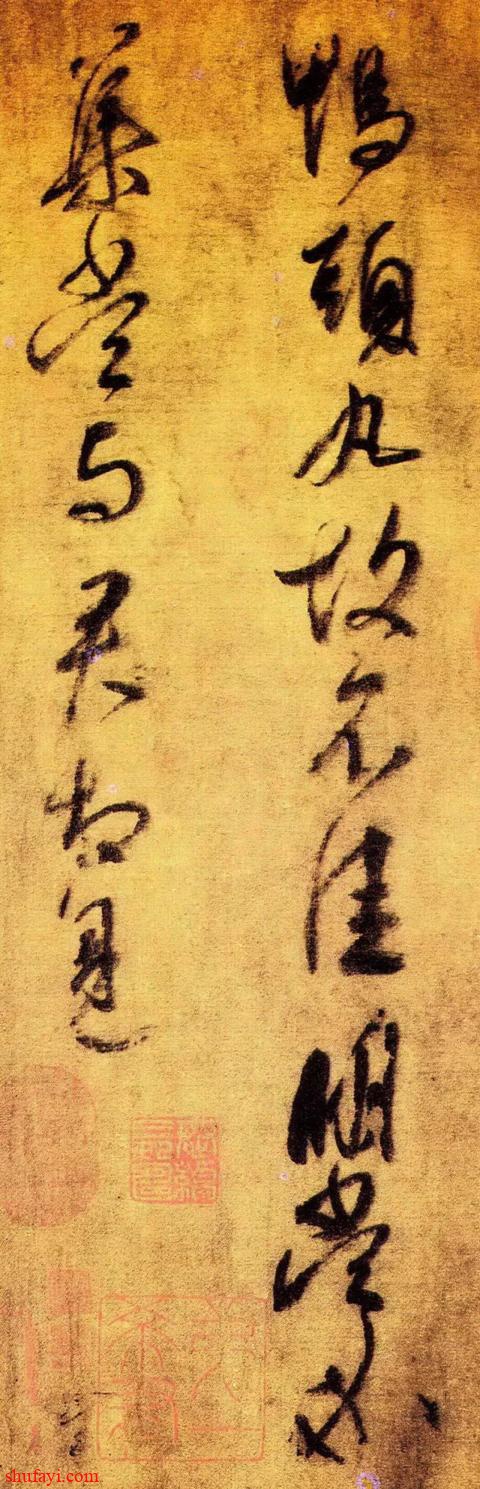 鴨頭丸故不佳明當必
集當與君相見
shufayi.com